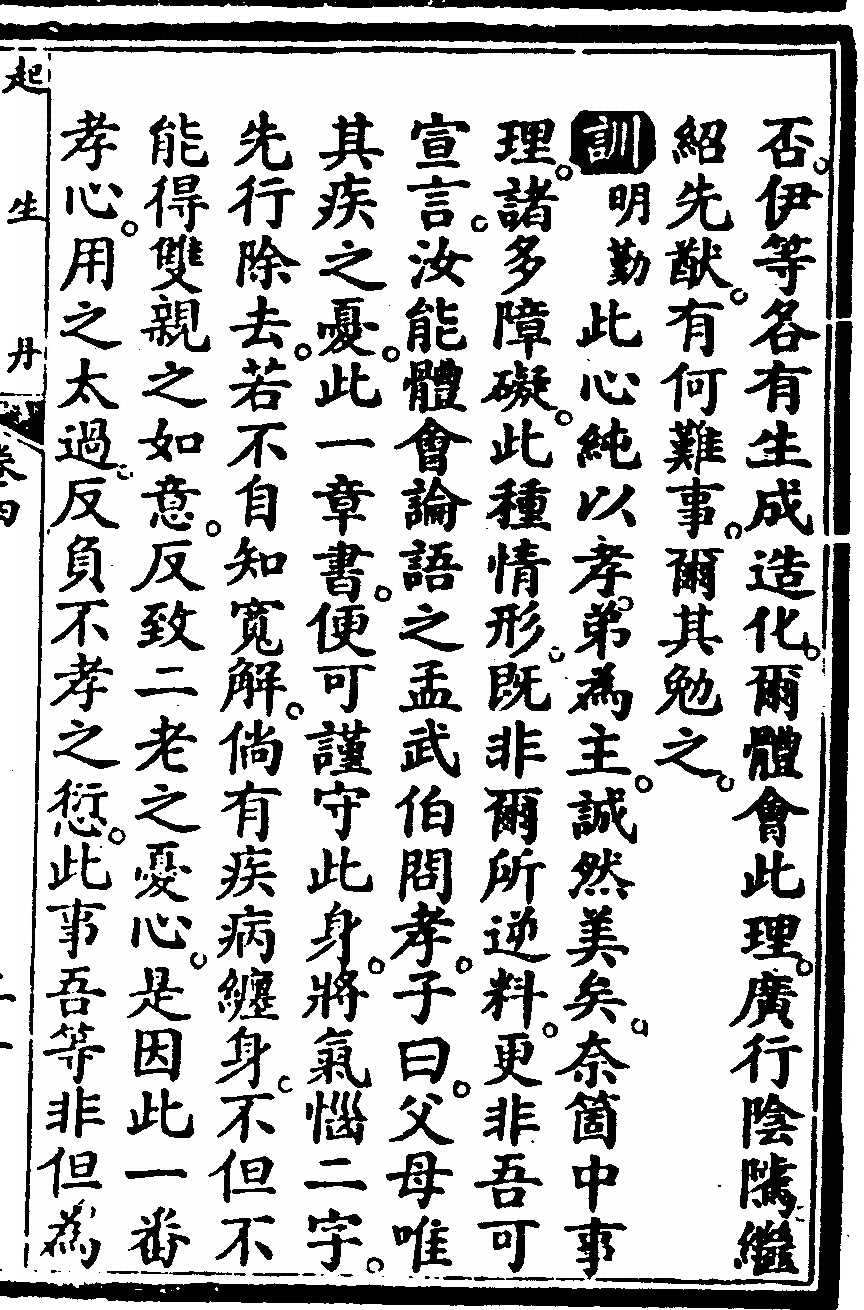 否。伊等各有生成造化。爾體會此理。廣行陰隲繼
紹先猷。有何難事。爾其勉之。
訓明勤此心純以孝。弟為主。誠然美矣。奈箇中事
理。諸多障礙。此種情形。既非爾所逆料。更非吾可
宣言。汝能體會論語之孟武伯問孝。子曰。父母唯
其疾之憂。此一章書。便可謹守此身。將氣惱二字。
先行除去。若不自知寬解。倘有疾病纏身。不但不
能得雙親之如意。反致二老之憂心。是因此一番
孝心。用之太過。反負不孝之愆。此事吾等非但為
起生丹
卷四